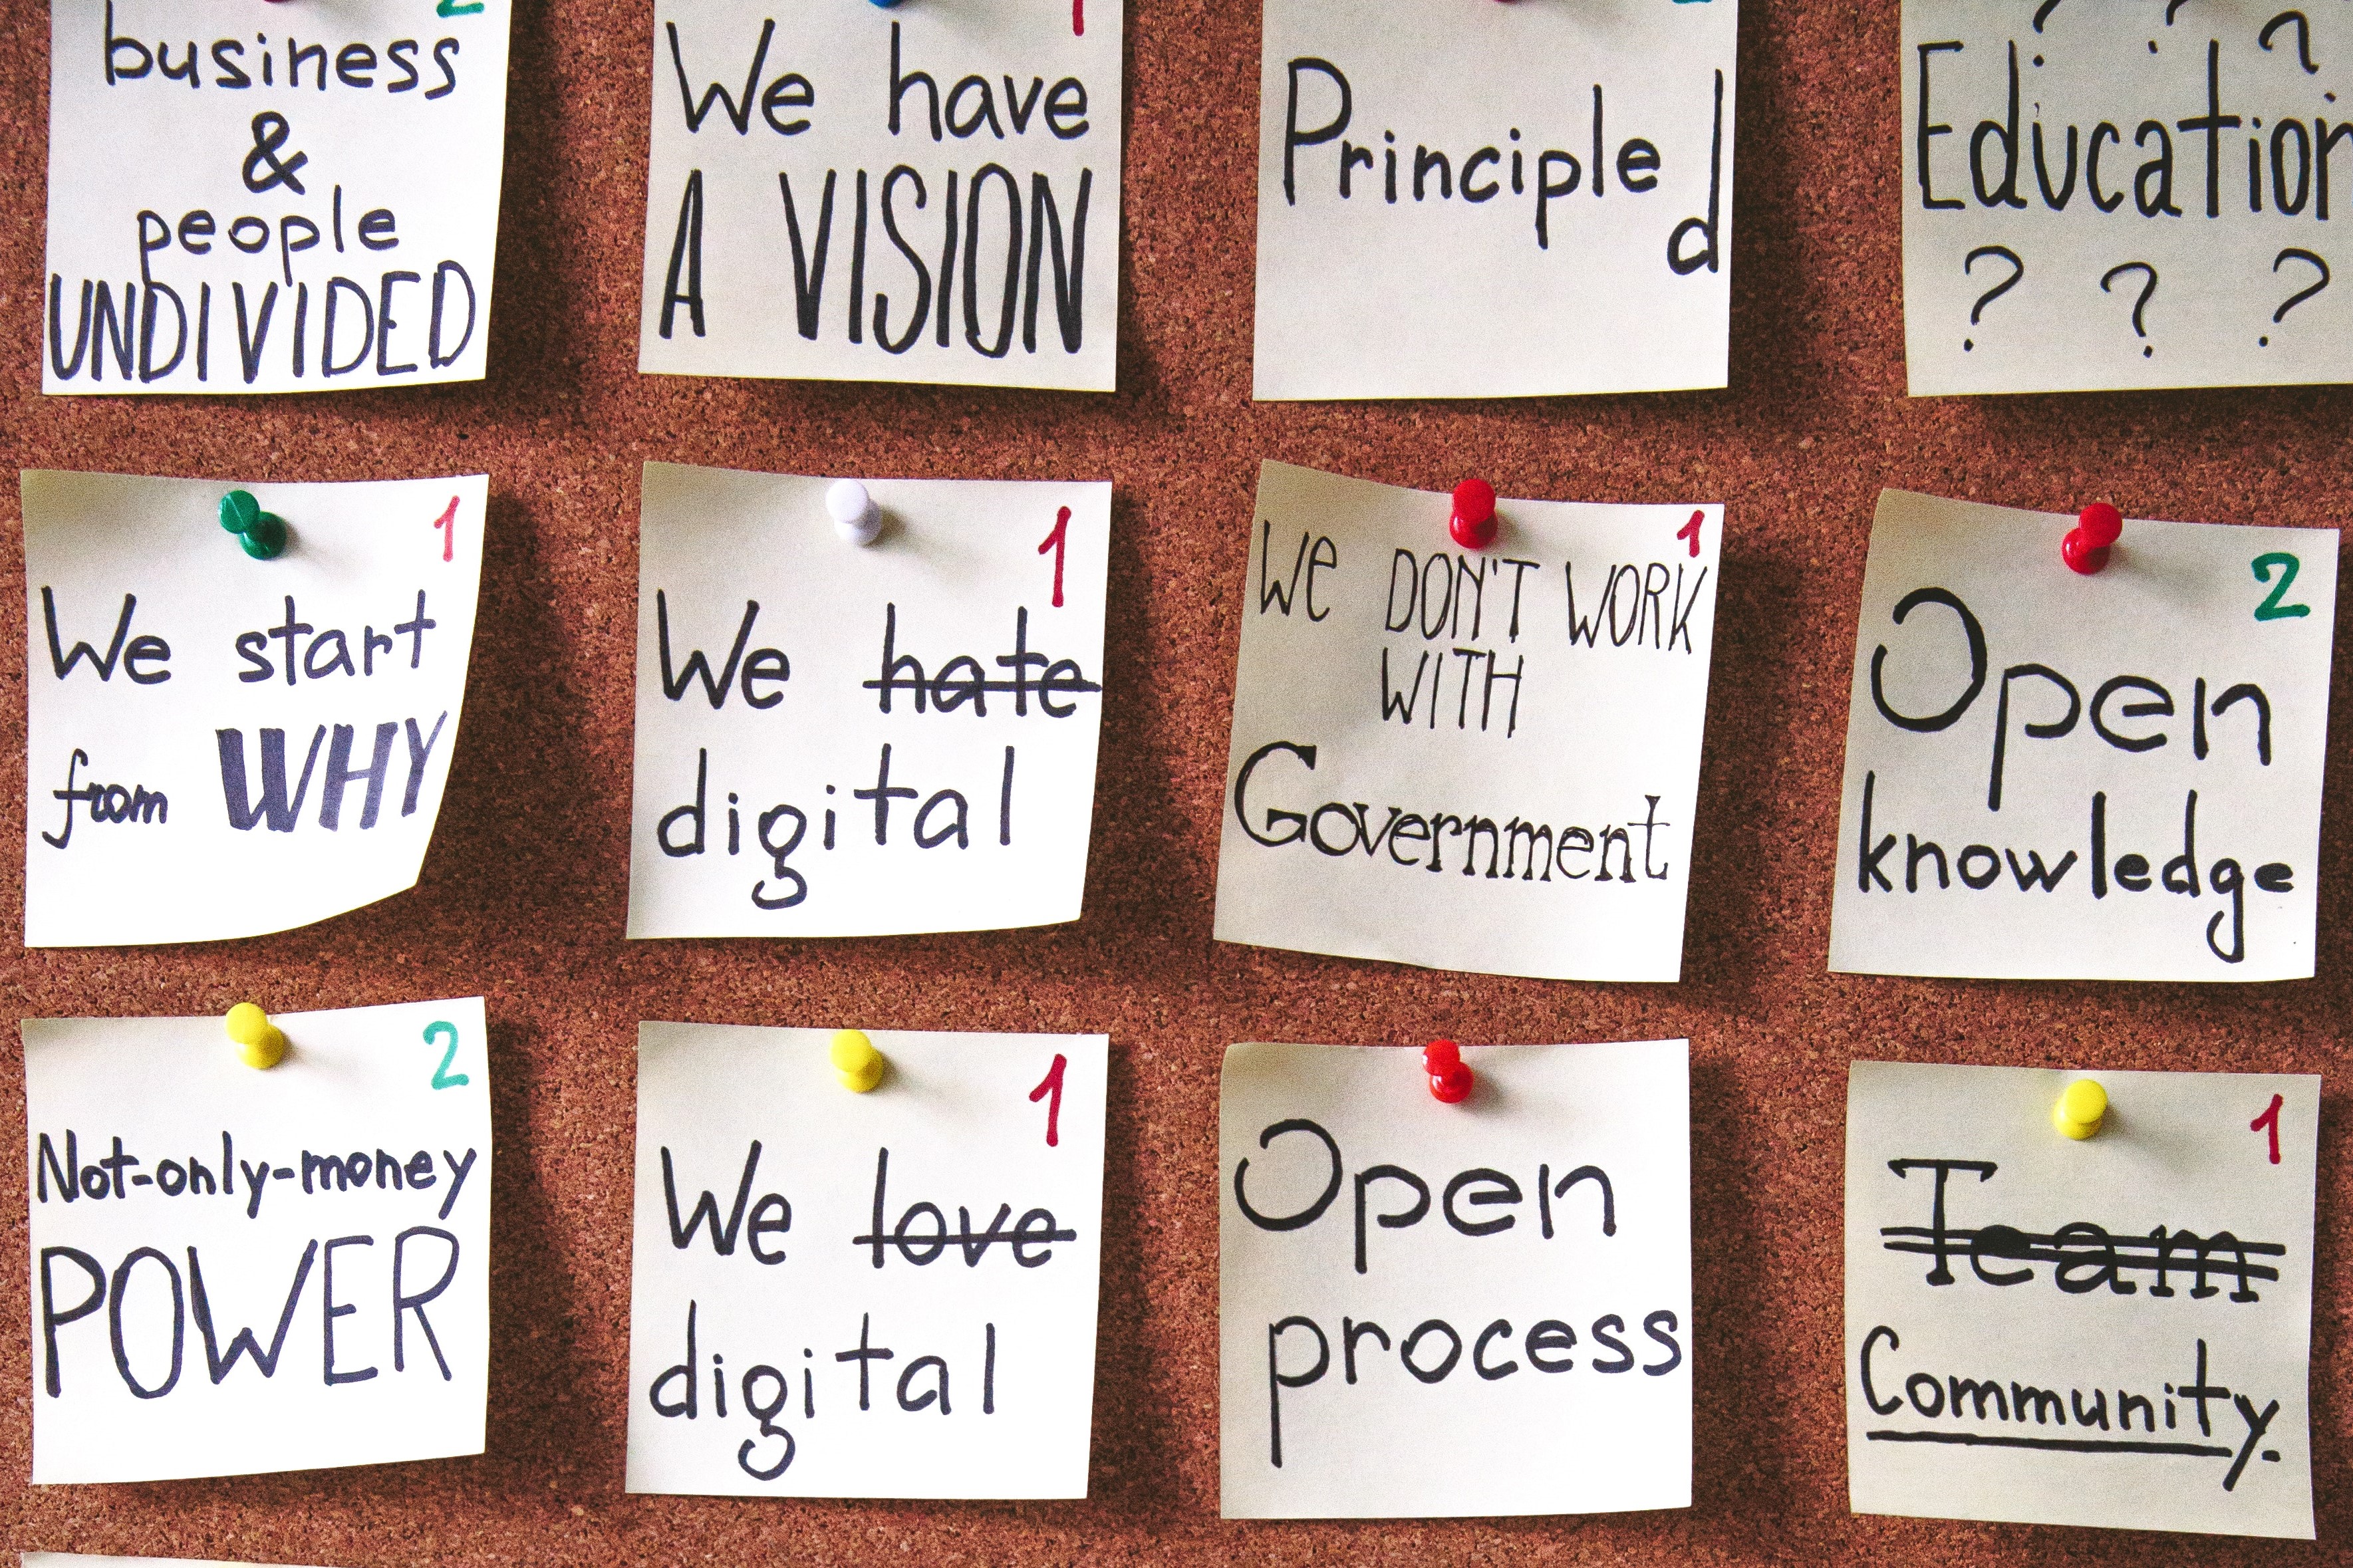 2
business
&
people
UNDIVIDED
1
We have
A VISION
Principled
? ? ?
Education
? ? ?
1
We start
from WHY
1
We hate
digital
1
We DON'T WORK
WITH
Government
2
Open
knowledge
2
Not-only-money
POWER
1
We love
digital
Open
process
1
Team
Community.